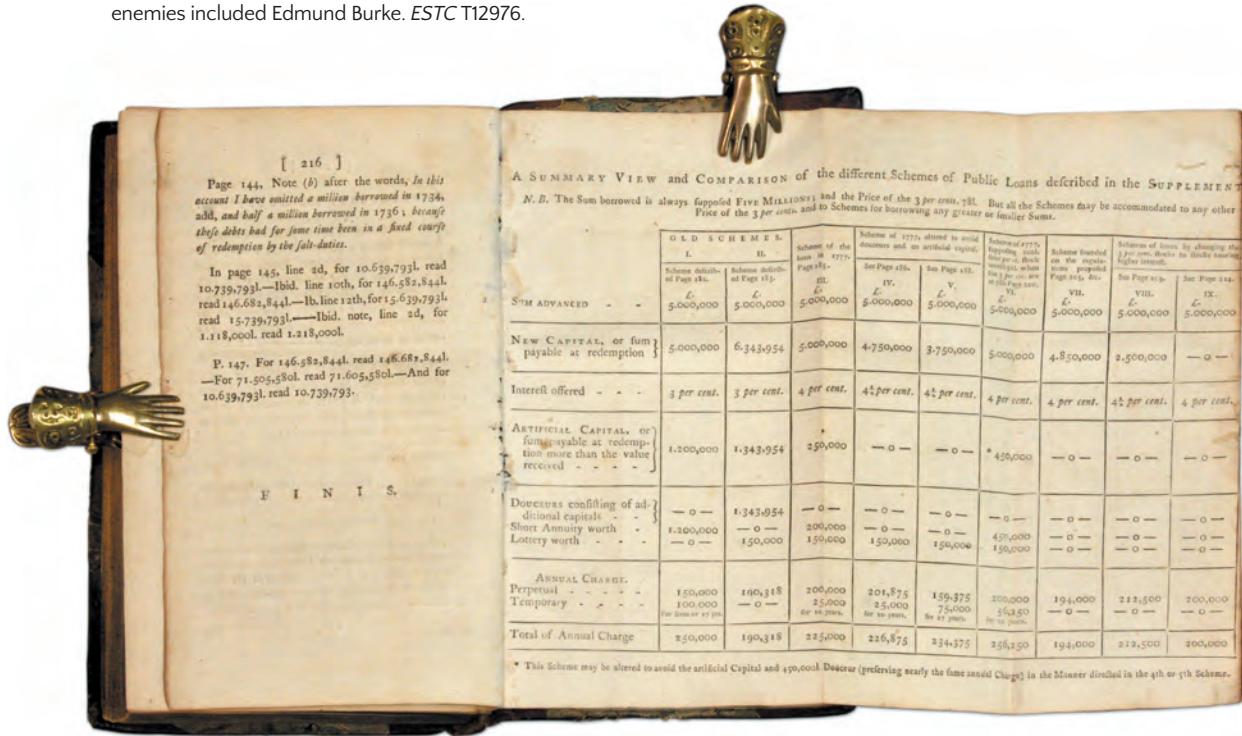 enemies included Edmund Burke. ESTC T12976.
[ 216 ]
Page 144, Note (b) after the words, In this
account I have omitted a million borrowed in 1734,
add, and half a million borrowed in 1736; becauſe
theſe debts had for ſome time been in a fixed courſe
of redemption by the ſalt-duties.
In page 145, line 2d, for 10.639,793l. read
10.739,793l.—Ibid. line 10th, for 146.582,844l.
read 146.682,844l.—Ib. line 12th, for 15.639,793l.
read 15.739,793l.——Ibid. note, line 2d, for
1.118,000l. read 1.218,000l.
P. 147. For 146.582,844l. read 146.682,844l.
—For 71.505,580l. read 71.605,580l.—And for
10.639,793l. read 10.739,793.
F I N I S.
A SUMMARY VIEW and COMPARISON of the different Schemes of Public Loans deſcribed in the SUPPLEMENT
N. B. The Sum borrowed is always ſuppoſed FIVE MILLIONS; and the Price of the 3 per cents. 78l. But all the Schemes may be accommodated to any other
Price of the 3 per cents. and to Schemes for borrowing any greater or ſmaller Sums.
OLD SCHEMES.
I. II.
Scheme deſcrib-
ed Page 182.
Scheme deſcrib-
ed Page 183.
Scheme of the
loan in 1777.
Page 185.
III.
Scheme of 1777, altered to avoid
douceurs and an artificial capital.
See Page 186. See Page 188.
IV. V.
Scheme of 1777,
VI.
Scheme founded
on the regula-
tions propoſed
Page 205, &c.
VII.
Schemes of loans by changing the
3 per cent. ſtocks to ſtocks bearing
higher intereſt.
See Page 209. See Page 212.
VIII. IX.
£. £. £. £. £. £. £. £. £.
SUM ADVANCED - - 5.000,000 5.000,000 5.000,000 5.000,000 5.000,000 5.000,000 5.000,000 5.000,000 5.000,000
NEW CAPITAL, or ſum
payable at redemption } 5.000,000 6.343,954 5.000,000 4.750,000 3.750,000 5.000,000 4.850,000 2.500,000 — 0 —
Intereſt offered - - - 3 per cent. 3 per cent. 4 per cent. 4¼ per cent. 4¼ per cent. 4 per cent. 4 per cent. 4¼ per cent. 4 per cent.
ARTIFICIAL CAPITAL, or
ſum payable at redemp-
tion more than the value
received - - - - } 1.200,000 1.343,954 * 250,000 — 0 — — 0 — * 450,000 — 0 — — 0 — — 0 —
DOUCEURS conſiſting of ad-
ditional capitals - - } — 0 — 1.343,954 — 0 — — 0 — — 0 — — 0 — — 0 — — 0 — — 0 —
Short Annuity worth - 1.200,000 — 0 — 200,000 — 0 — — 0 — 450,000 — 0 — — 0 — — 0 —
Lottery worth - - - — 0 — 150,000 150,000 150,000 150,000 150,000 — 0 — — 0 — — 0 —
ANNUAL CHARGE.
Perpetual - - - - - 150,000 190,318 200,000 201,875 159,375 200,000 194,000 212,500 200,000
Temporary - - - - 100,000 — 0 — 25,000 25,000 75,000 56,250 — 0 — — 0 — — 0 —
for 10 years. for 10 years. for 27 years. for 10 years.
Total of Annual Charge 250,000 190,318 225,000 226,875 234,375 256,250 194,000 212,500 200,000
* This Scheme may be altered to avoid the artificial Capital and 450,000l. Douceur (preſerving nearly the ſame annual Charge) in the Manner directed in the 4th or 5th Scheme.